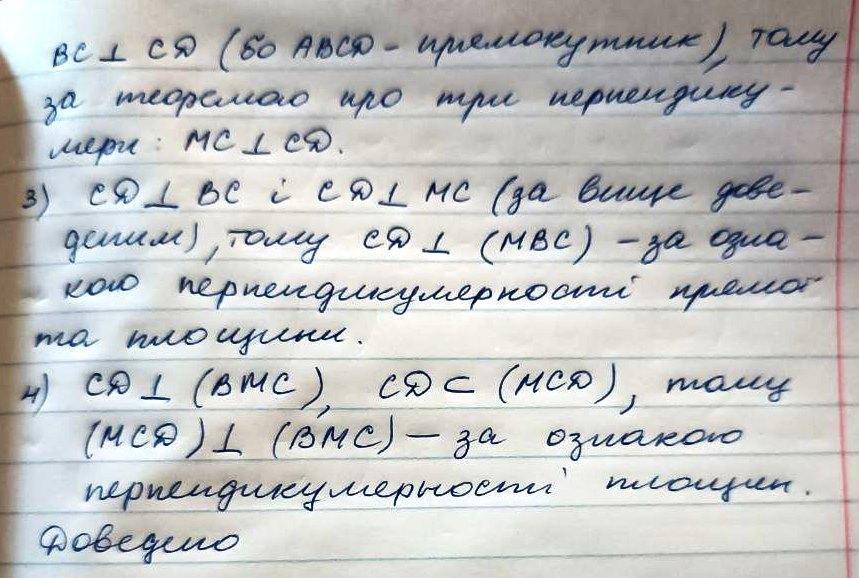 BC ⊥ CD (бо ABCD - прямокутник), тому
за теоремою про три перпендику-
ляри: MC ⊥ CD.
3) CD ⊥ BC і CD ⊥ MC (за вище дове-
деним), тому CD ⊥ (MBC) - за озна-
кою перпендикулярності прямої
та площини.
4) CD ⊥ (BMC), CD ⊂ (MCD), тому
(MCD) ⊥ (BMC) - за ознакою
перпендикулярності площин.
Доведено